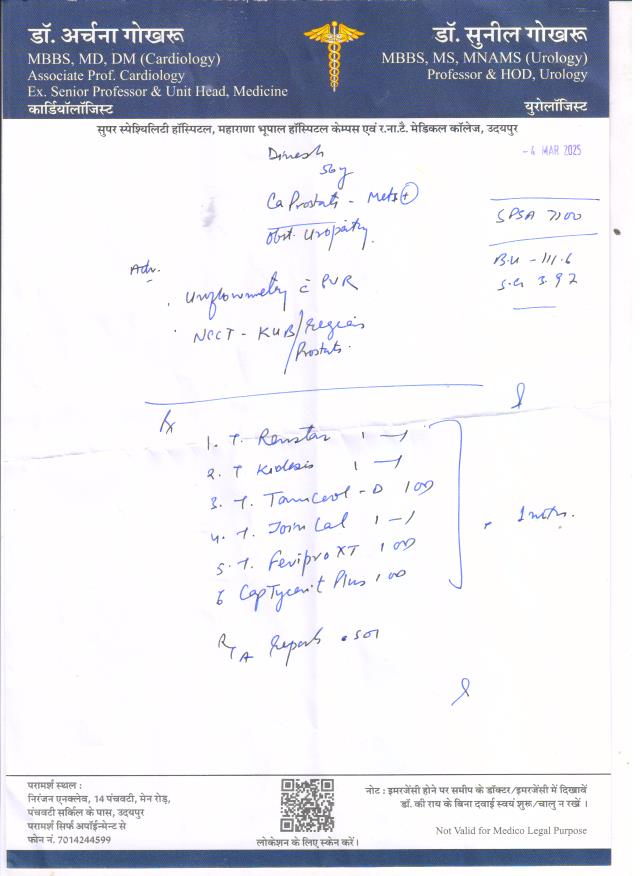 डॉ. अर्चना गोखरू
MBBS, MD, DM (Cardiology)
Associate Prof. Cardiology
Ex. Senior Professor & Unit Head, Medicine
कार्डियॉलॉजिस्ट
डॉ. सुनील गोखरू
MBBS, MS, MNAMS (Urology)
Professor & HOD, Urology
युरोलॉजिस्ट
सुपर स्पेश्यिलिटी हॉस्पिटल, महाराणा भूपाल हॉस्पिटल केम्पस एवं र.ना.टै. मेडिकल कॉलेज, उदयपुर
- 4 MAR 2025
Dinesh
56y
Ca Prostate - Mets +
Obst. Uropathy.
SPSA 7100
B.U - 111.6
S.Cr 3.92
Adv.
Uroflowmetry c̄ PVR
NCCT - KUB/Region
Prostate.
Rx
1. T. Renstar 1 - 1
2. T Kidosis 1 - 1
3. T. Tamceol-D 1 OD
4. T. Join Cal 1 - 1
5. T. Fevipro XT 1 OD
6 Cap Tycent Plus 1 OD
R/A Reports
परामर्श स्थल :
निरंजन एनक्लेव, 14 पंचवटी, मेन रोड़,
पंचवटी सर्किल के पास, उदयपुर
परामर्श सिर्फ अपॉईन्मेन्ट से
फोन नं. 7014244599
लोकेशन के लिए स्केन करें।
नोट : इमरजेंसी होने पर समीप के डॉक्टर/इमरजेंसी में दिखावें
डॉ. की राय के बिना दवाई स्वयं शुरू/चालु न रखें ।
Not Valid for Medico Legal Purpose